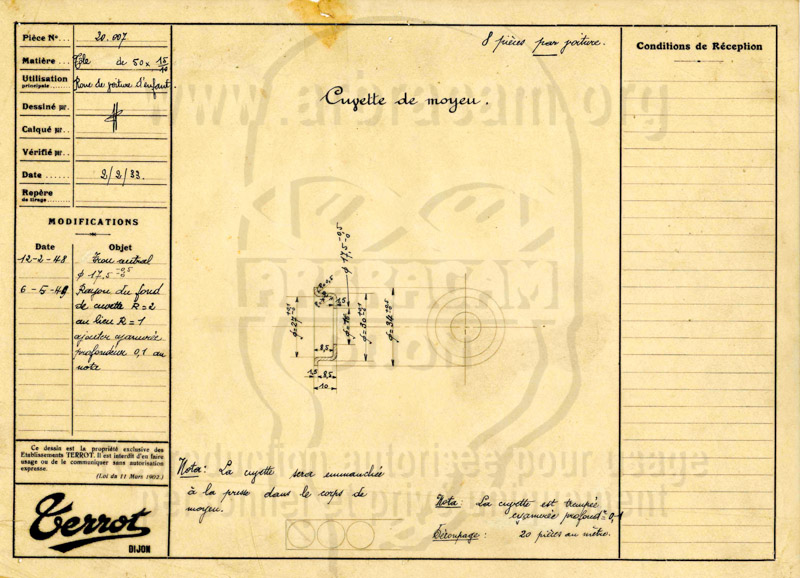 Pièce No... 20.007
Matière... Tôle de 50 x 15/10
Utilisation
principale... Roue de voiture d'enfant.
Dessiné pr.
Calqué pr...
Vérifié pr...
Date... 2/2/33.
Repère
de tirage...
MODIFICATIONS
Date Objet
12-2-48 Trou central
φ 17,5 -0,5 -0
6-5-49 Rayon du fond
de cuvette R=2
au lieu R=1
ajouter cyanurée
profondeur 0,1 au
nota
Ce dessin est la propriété exclusive des
Etablissements TERROT. Il est interdit d'en faire
usage ou de le communiquer sans autorisation
expresse.
(Loi du 11 Mars 1902.)
Terrot
DIJON
8 pièces par voiture.
Cuvette de moyeu.
φ 17,5 -0,5 -0
φ=27
φ=30
φ=34
8,5
1,5 8,5
10
Nota: La cuvette sera emmanchée
à la presse dans le corps de
moyeu.
Nota: La cuvette est trempée
cyanurée profondr=0,1
Découpage: 20 pièces au mètre.
Conditions de Réception
www.arbracam.org
ARBRACAM
DIJON
Reproduction autorisée pour usage
personnel et privé uniquement